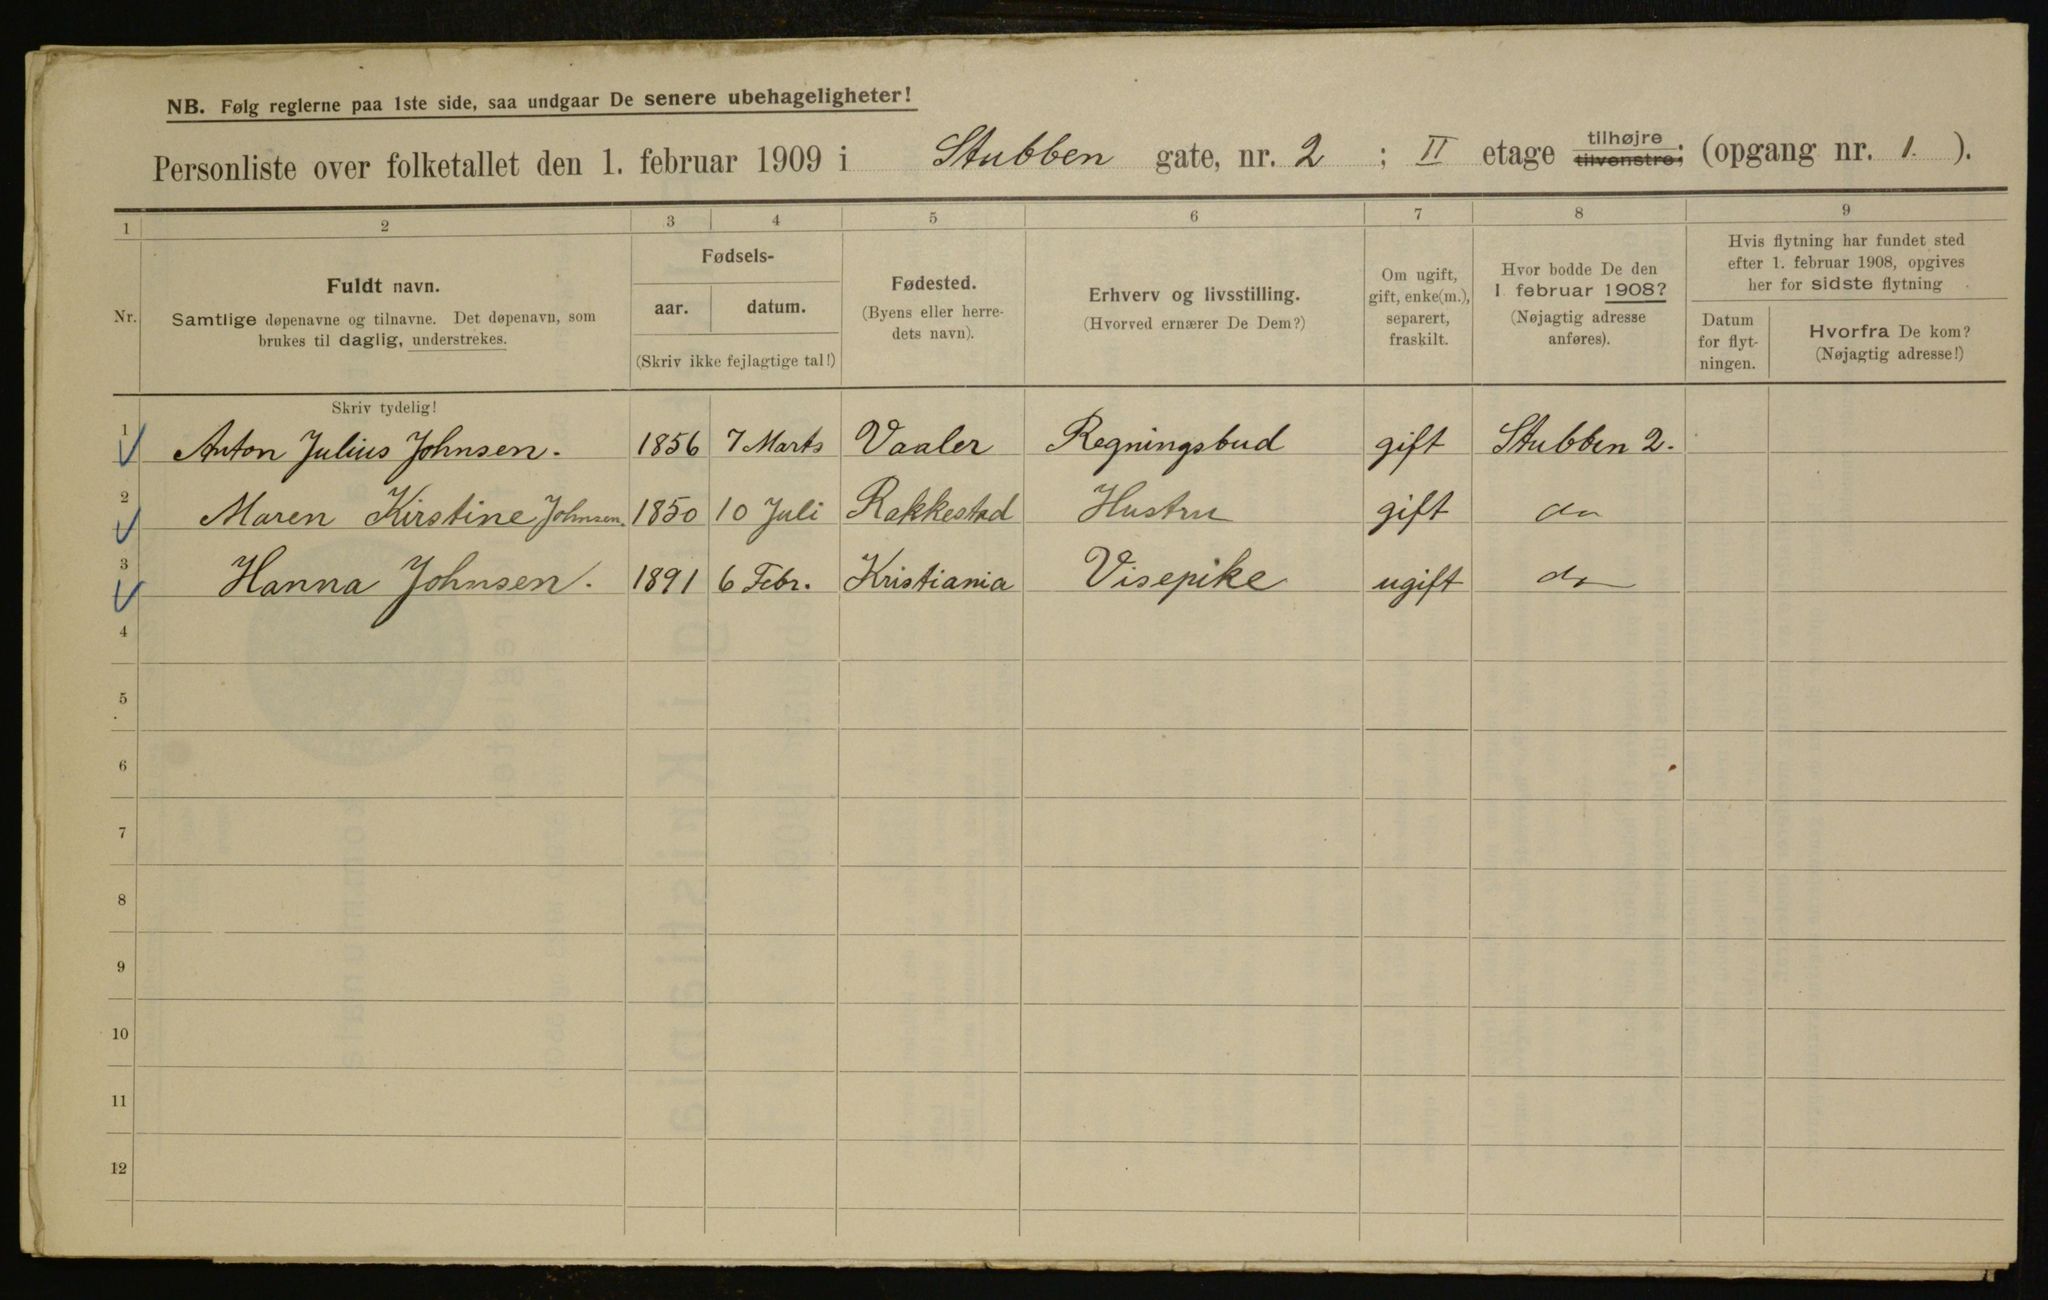 NB. Følg reglerne paa 1ste side, saa undgaar De senere ubehageligheter!
Personliste over folketallet den 1. februar 1909 i Stubben gate, nr. 2 ; II etage tilhøjre tilvenstre; (opgang nr. 1. ).
1 2 3 4 5 6 7 8 9
Nr.
Fuldt navn.
Samtlige døpenavne og tilnavne. Det døpenavn, som
brukes til daglig, understrekes.
Fødsels-
aar. datum.
(Skriv ikke fejlagtige tal!)
Fødested.
(Byens eller herre-
dets navn).
Erhverv og livsstilling.
(Hvorved ernærer De Dem?)
Om ugift,
gift, enke(m.),
separert,
fraskilt.
Hvor bodde De den
1 februar 1908?
(Nøjagtig adresse
anføres).
Hvis flytning har fundet sted
efter 1. februar 1908, opgives
her for sidste flytning
Datum
for flyt-
ningen.
Hvorfra De kom?
(Nøjagtig adresse!)
Skriv tydelig!
1 Anton Julius Johnsen. 1856 7 Marts Vaaler Regningsbud gift Stubben 2.
2 Maren Kirstine Johnsen. 1850 10 Juli Rakkestad Hustru gift do
3 Hanna Johnsen. 1891 6 Febr. Kristiania Visepike ugift do
4
5
6
7
8
9
10
11
12